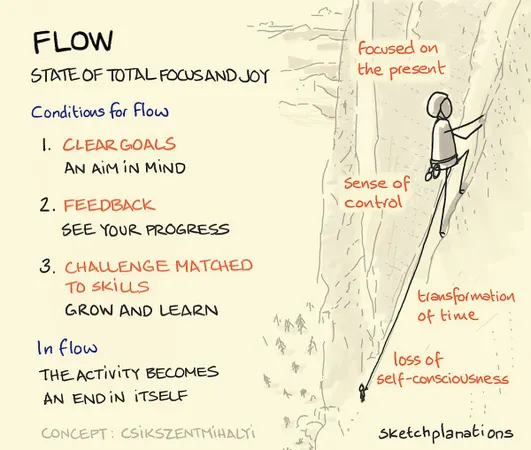 FLOW
STATE OF TOTAL FOCUS AND JOY
Conditions for flow
1. CLEAR GOALS
AN AIM IN MIND
2. FEEDBACK
SEE YOUR PROGRESS
3. CHALLENGE MATCHED
TO SKILLS
GROW AND LEARN
In flow
THE ACTIVITY BECOMES
AN END IN ITSELF
CONCEPT: CSIKSZENTMIHALYI
focused on
the present
sense of
control
transformation
of time
loss of
self-consciousness
sketchplanations